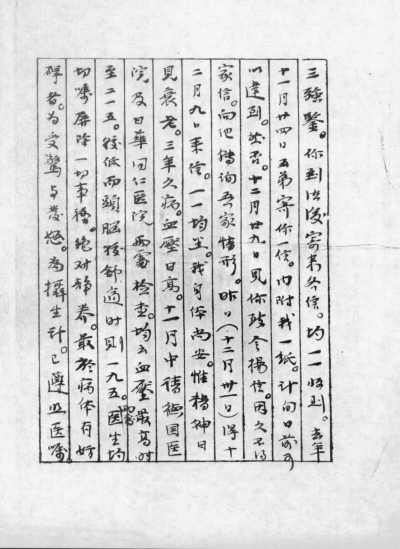 三强鉴。你到法后寄来各信。均一一收到。去年
十一月廿四日五弟寄你一信。内附我一纸。计旬日前可
以达到。然否。十二月廿九日见你致令扬信。因久不得
家信。向他转询吾家情形。昨日(十二月卅一日)得十
二月九日来信。一一均悉。我身体尚安。惟精神日
见衰老。三年久病。血压日高。十一月中请德国医
院及日华同仁医院两处检查。均云血压最高时
至二一五。后低而头脑较舒适时则一九五。医生均
切嘱屏除一切事务。绝对静养。最于病体有妨
碍者。为受惊与忧怒。为摄生计。已遵照医嘱。